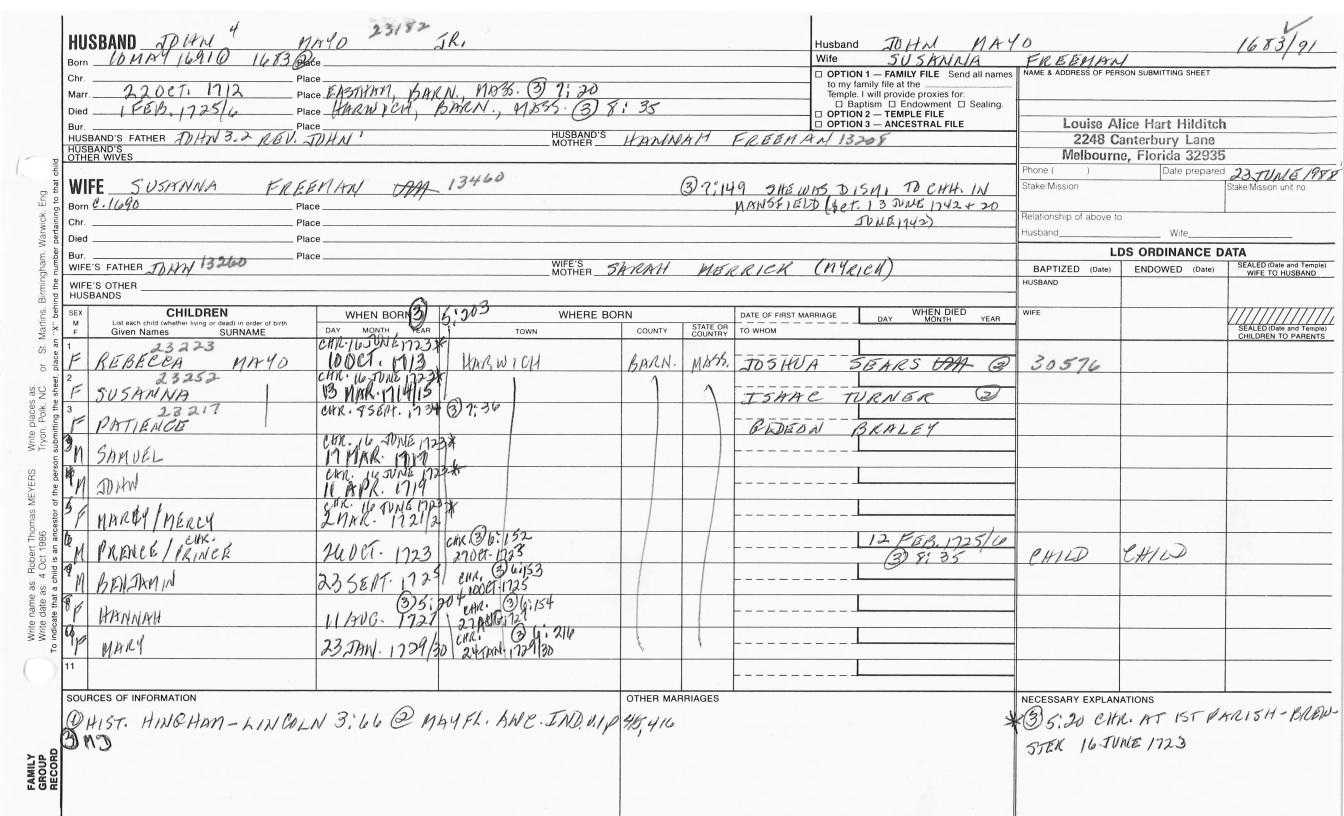 HUSBAND JOHN 4 MAYO 23182 JR.
Born 10 MAY 1691① 1683② Place
Chr. Place
Marr. 22 OCT. 1712 Place EASTHAM, BARN, MASS. ③ 7:20
Died 1 FEB. 1725/6 Place HARWICH, BARN., MASS. ③ 8:35
Bur. Place
HUSBAND'S FATHER JOHN 3.2 REV. JOHN' HUSBAND'S MOTHER HANNAH FREEMAN 13208
HUSBAND'S OTHER WIVES
WIFE SUSANNA FREEMAN 13460 ③ 7:149 SHE WAS DISM. TO CHH. IN
Born C.1690 Place MANSFIELD (bet. 13 JUNE 1742 & 20
Chr. Place JUNE 1742)
Died Place
Bur. Place
WIFE'S FATHER JOHN 13260 WIFE'S MOTHER SARAH MERRICK (MYRICK)
WIFE'S OTHER HUSBANDS
Husband JOHN MAYO 1683/91
Wife SUSANNA FREEMAN
☐ OPTION 1 — FAMILY FILE Send all names
to my family file at the
Temple. I will provide proxies for:
☐ Baptism ☐ Endowment ☐ Sealing.
☐ OPTION 2 — TEMPLE FILE
☐ OPTION 3 — ANCESTRAL FILE
NAME & ADDRESS OF PERSON SUBMITTING SHEET
Louise Alice Hart Hilditch
2248 Canterbury Lane
Melbourne, Florida 32935
Phone ( ) Date prepared 23 JUNE 1988
Stake Mission Stake Mission unit no
Relationship of above to
Husband Wife
LDS ORDINANCE DATA
BAPTIZED (Date) ENDOWED (Date) SEALED (Date and Temple) WIFE TO HUSBAND
HUSBAND
WIFE
SEALED (Date and Temple) CHILDREN TO PARENTS
SEX M F
CHILDREN
List each child (whether living or dead) in order of birth
Given Names SURNAME
WHEN BORN ③ 5:203 WHERE BORN
DAY MONTH YEAR TOWN COUNTY STATE OR COUNTRY
DATE OF FIRST MARRIAGE
TO WHOM
WHEN DIED
DAY MONTH YEAR
1 23223 CHR. 16 JUNE 1723*
F REBECCA MAYO 10 OCT. 1713 HARWICH BARN. MASS. JOSHUA SEARS ② 30576
2 23252 CHR. 16 JUNE 1723*
F SUSANNA 13 MAR. 1714/15 ISAAC TURNER ②
3 23217 CHR. 8 SEPT. 1734 ③ 7:36
F PATIENCE GIDEON BRALEY
CHR. 16 JUNE 1723*
M SAMUEL 17 MAR. 1717
CHR. 16 JUNE 1723*
M JOHN 11 APR. 1719
CHR. 16 JUNE 1723*
F MARCY/MERCY 2 MAR. 1721/2
CHR. CHR. ③ 6:152 12 FEB. 1725/6
M PRENCE/PRINCE 26 OCT. 1723 27 OCT. 1723 ③ 8:35 CHILD CHILD
M BENJAMIN 23 SEPT. 1725 CHR. ③ 6:153 10 OCT. 1725
③ 5:204 CHR. ③ 6:154
F HANNAH 11 AUG. 1727 27 AUG. 1727
CHR. ③ 6:216
F MARY 23 JAN. 1729/30 24 JAN. 1729/30
11
SOURCES OF INFORMATION
① HIST. HINGHAM-LINCOLN 3:66 ② MAYFL. ANC. IND. VIP 45,416
③ MD
OTHER MARRIAGES
NECESSARY EXPLANATIONS
* ③ 5:20 CHR. AT 1ST PARISH-BREW-
STER 16 JUNE 1723
Write name as Robert Thomas MEYERS Write places as Tryon, Polk, NC or St. Martins, Birmingham, Warwick, Eng
Write date as 4 Oct 1986
To indicate that a child is an ancestor of the person submitting the sheet, place an "X" behind the number pertaining to that child
FAMILY GROUP RECORD